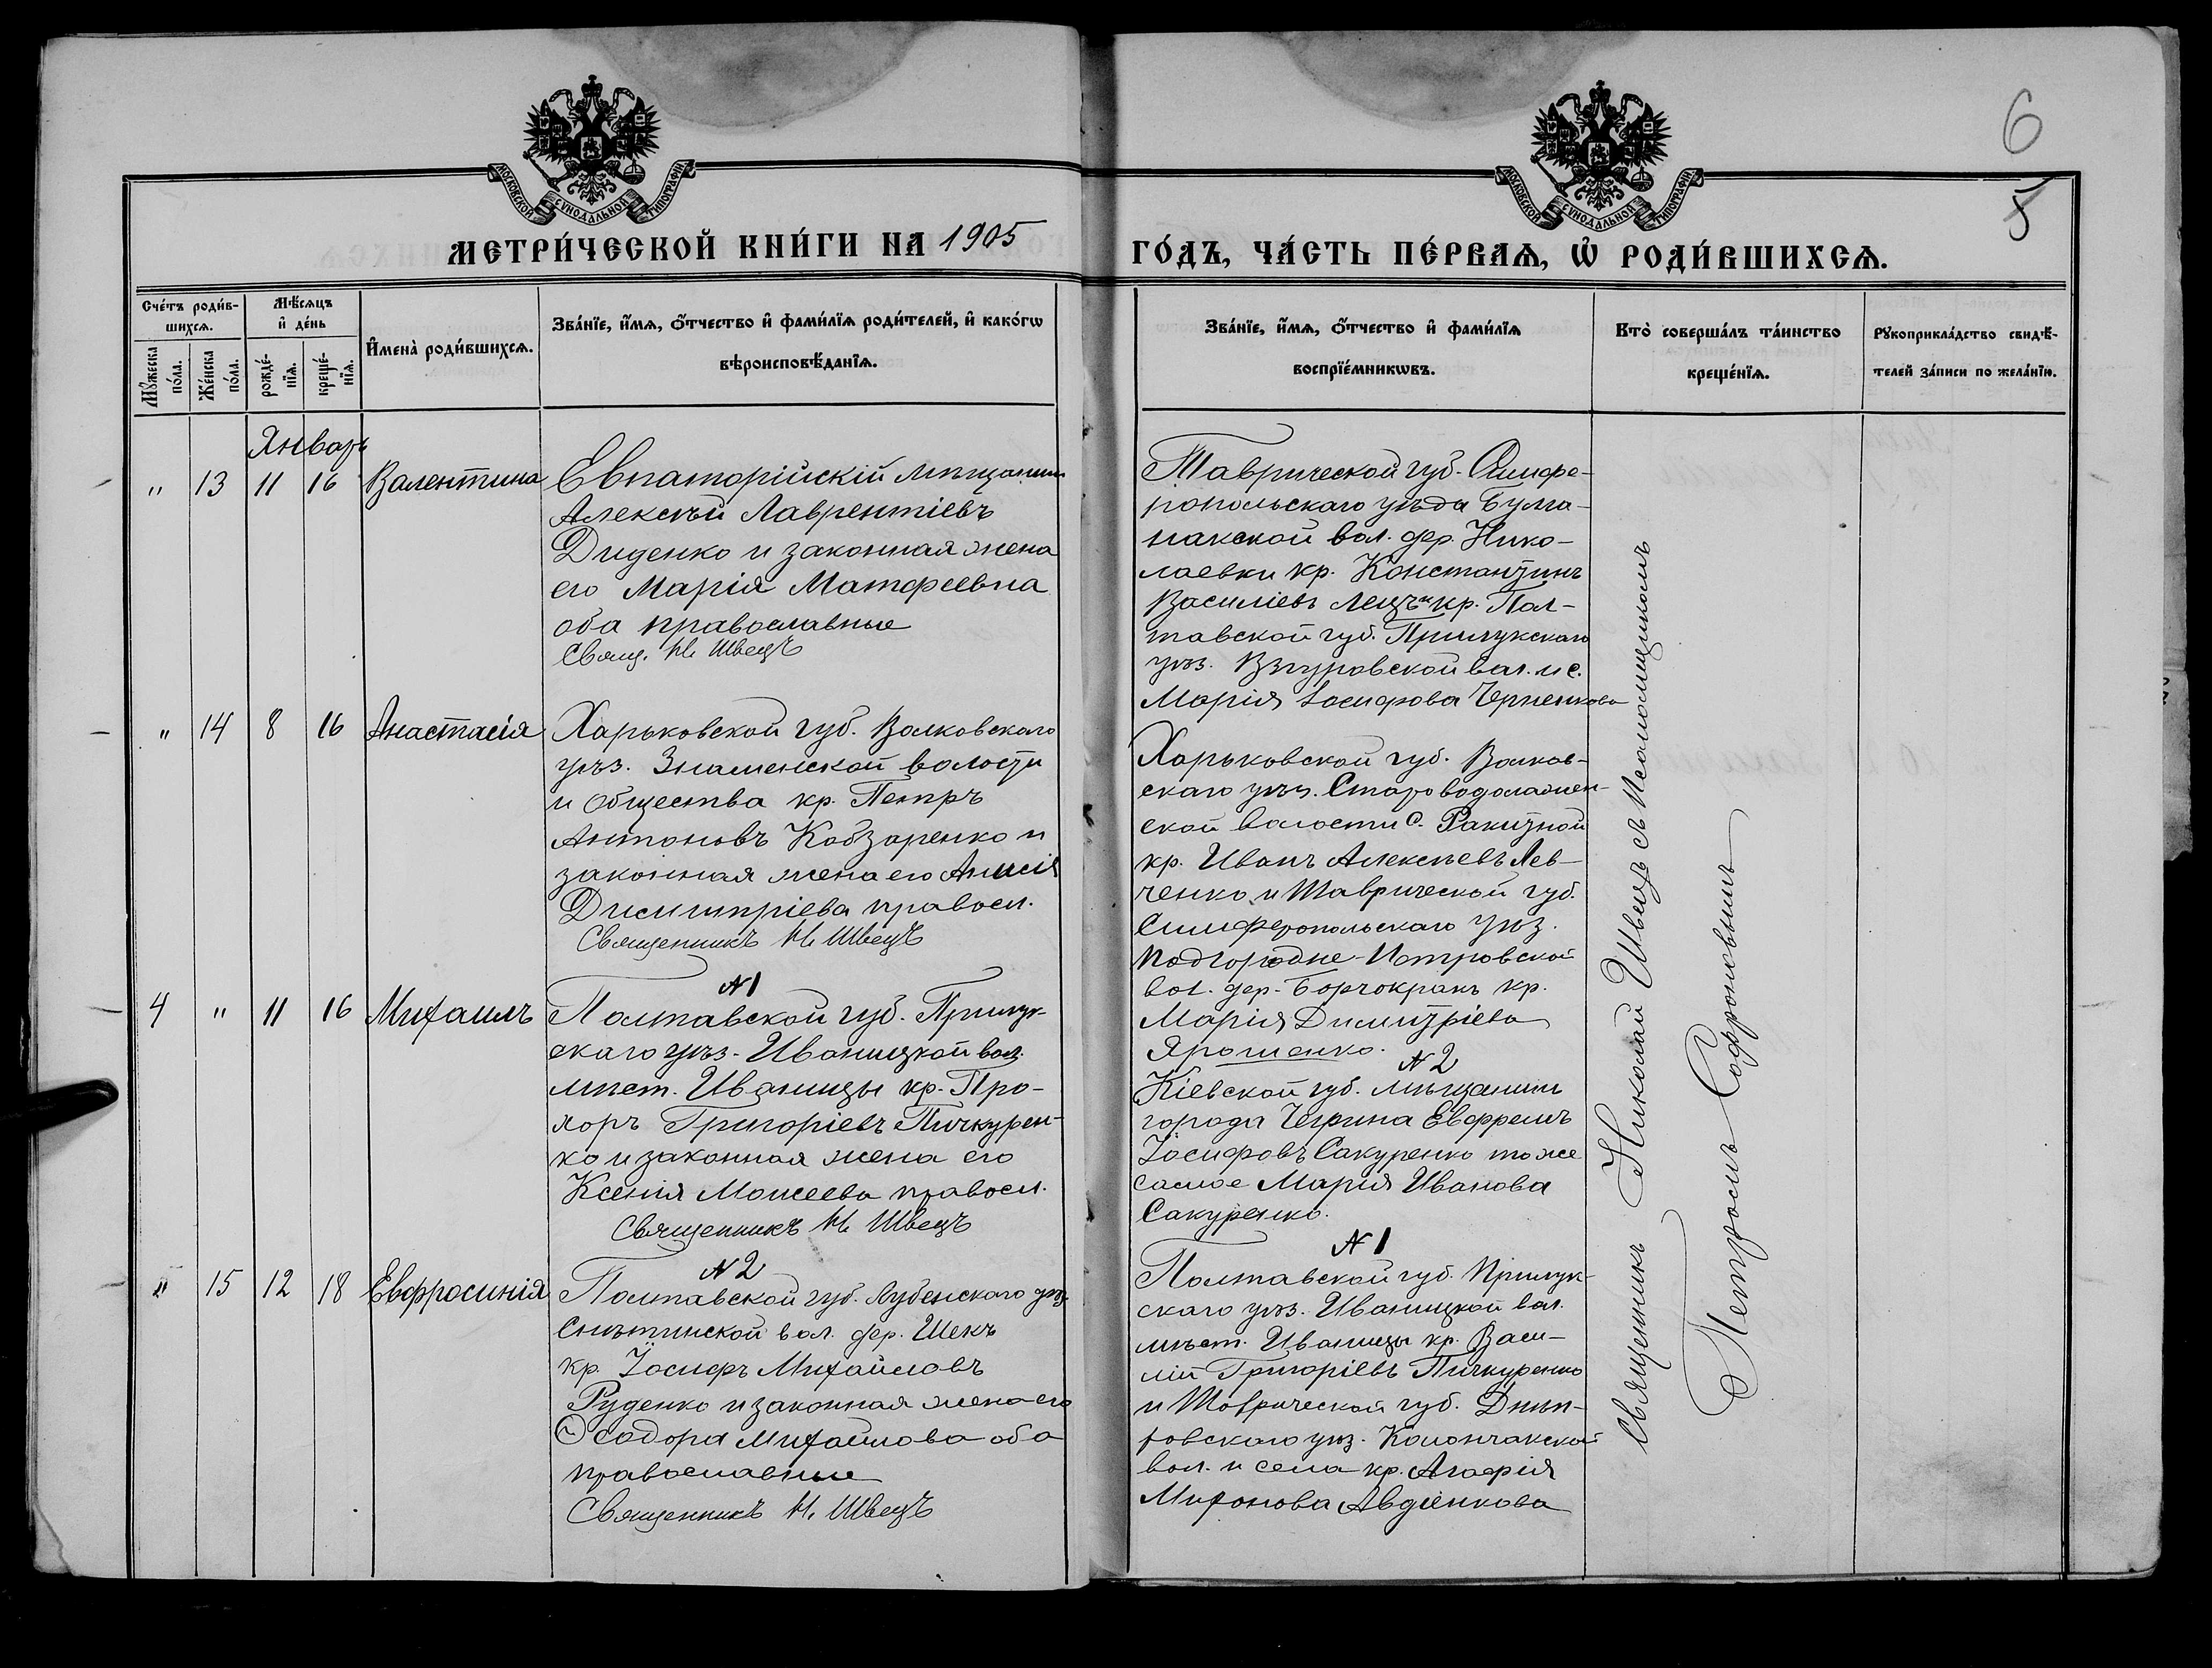 6
5
МОСКОВСКОЙ СѴНОДАЛЬНОЙ ТИПОГРАФІИ
МОСКОВСКОЙ СѴНОДАЛЬНОЙ ТИПОГРАФІИ
МЕТРИ́ЧЕСКОЙ КНИ́ГИ НА 1905
ГО́ДЪ, ЧА́СТЬ ПЕ́РВАѦ, Ѡ҆ РОДИ́ВШИХСѦ.
Сче́тъ роди́в-
шихсѧ.
Мꙋ́жеска по́ла.
Же́нска по́ла.
Мѣ́сѧцъ
и҆ де́нь
рожде́-
нїѧ.
креще́-
нїѧ.
И҆мена̀ роди́вшихсѧ.
Зва́нїе, и҆́мѧ, ѻ҆́тчество и҆ фами́лїѧ роди́телей, и҆ како́гѡ
вѣроисповѣ́данїѧ.
Зва́нїе, и҆́мѧ, ѻ҆́тчество и҆ фами́лїѧ
воспрїе́мникѡвъ.
Кто̀ соверша́лъ та́инство
креще́нїѧ.
Рꙋкоприкла́дство свидѣ́-
телей за́писи по жела́нїю.
Январь
" 13 11 16 Валентина
Евпаторійскій мѣщанинъ
Алексѣй Лаврентіевъ
Диденко и законная жена
его Марія Матфеевна
оба православные
Свящ. Н. Швецъ
Таврической губ. Симфе-
ропольскаго уѣзда Булга-
накской вол. дер. Нико-
лаевки кр. Константинъ
Василіевъ Лецъ и кр. Пол-
тавской губ. Прилукскаго
уѣз. Взгуровской вол. и с.
Марія Іосифова Черненкова
" 14 8 16 Анастасія
Харьковской губ. Валковскаго
уѣз. Знаменской волости
и общества кр. Петръ
Антоновъ Кобзаренко и
законная жена его Анисія
Димитріева правосл.
Священникъ Н. Швецъ
Харьковской губ. Валков-
скаго уѣз. Староводолажен-
ской волости с. Ракитной
кр. Иванъ Алексѣевъ Лев-
ченко и Таврической губ.
Симферопольскаго уѣз.
Подгородне-Петровской
вол. дер. Борчокракъ кр.
Марія Димитріева
Ярошенко.
4 " 11 16 Михаилъ
№ 1
Полтавской губ. Прилук-
скаго уѣз. Иваницкой вол.
мѣст. Иваницы кр. Про-
хоръ Григоріевъ Пичкурен-
ко и законная жена его
Ксенія Моисеева правосл.
Священникъ Н. Швецъ
№ 2
Кіевской губ. мѣщанинъ
города Чегрина Евфремъ
Іосифовъ Сакуренко то же
самое Марія Иванова
Сакуренко.
" 15 12 18 Евфросинія
№ 2
Полтавской губ. Лубенскаго уѣз.
Снѣтинской вол. дер. Шекъ
кр. Іосифъ Михайловъ
Руденко и законная жена его
Ѳеодора Михайлова оба
православные
Священникъ Н. Швецъ
№ 1
Полтавской губ. Прилук-
скаго уѣз. Иваницкой вол.
мѣст. Иваницы кр. Васи-
лій Григоріевъ Пичкуренко
и Таврической губ. Днѣп-
ровскаго уѣз. Колончакской
вол. и села кр. Агафія
Миронова Авдіенкова
Священникъ Николай Швецъ съ Псаломщикомъ
Петромъ Софроновымъ